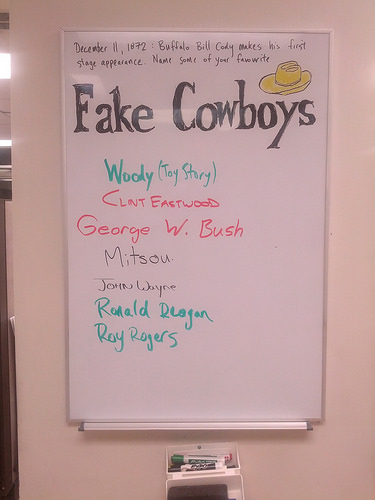 December 11, 1872: Buffalo Bill Cody makes his first
stage appearance. Name some of your favourite
Fake Cowboys
Woody (Toy Story)
CLINT EASTWOOD
George W. Bush
Mitsou
JOHN Wayne
Ronald Reagan
Roy Rogers